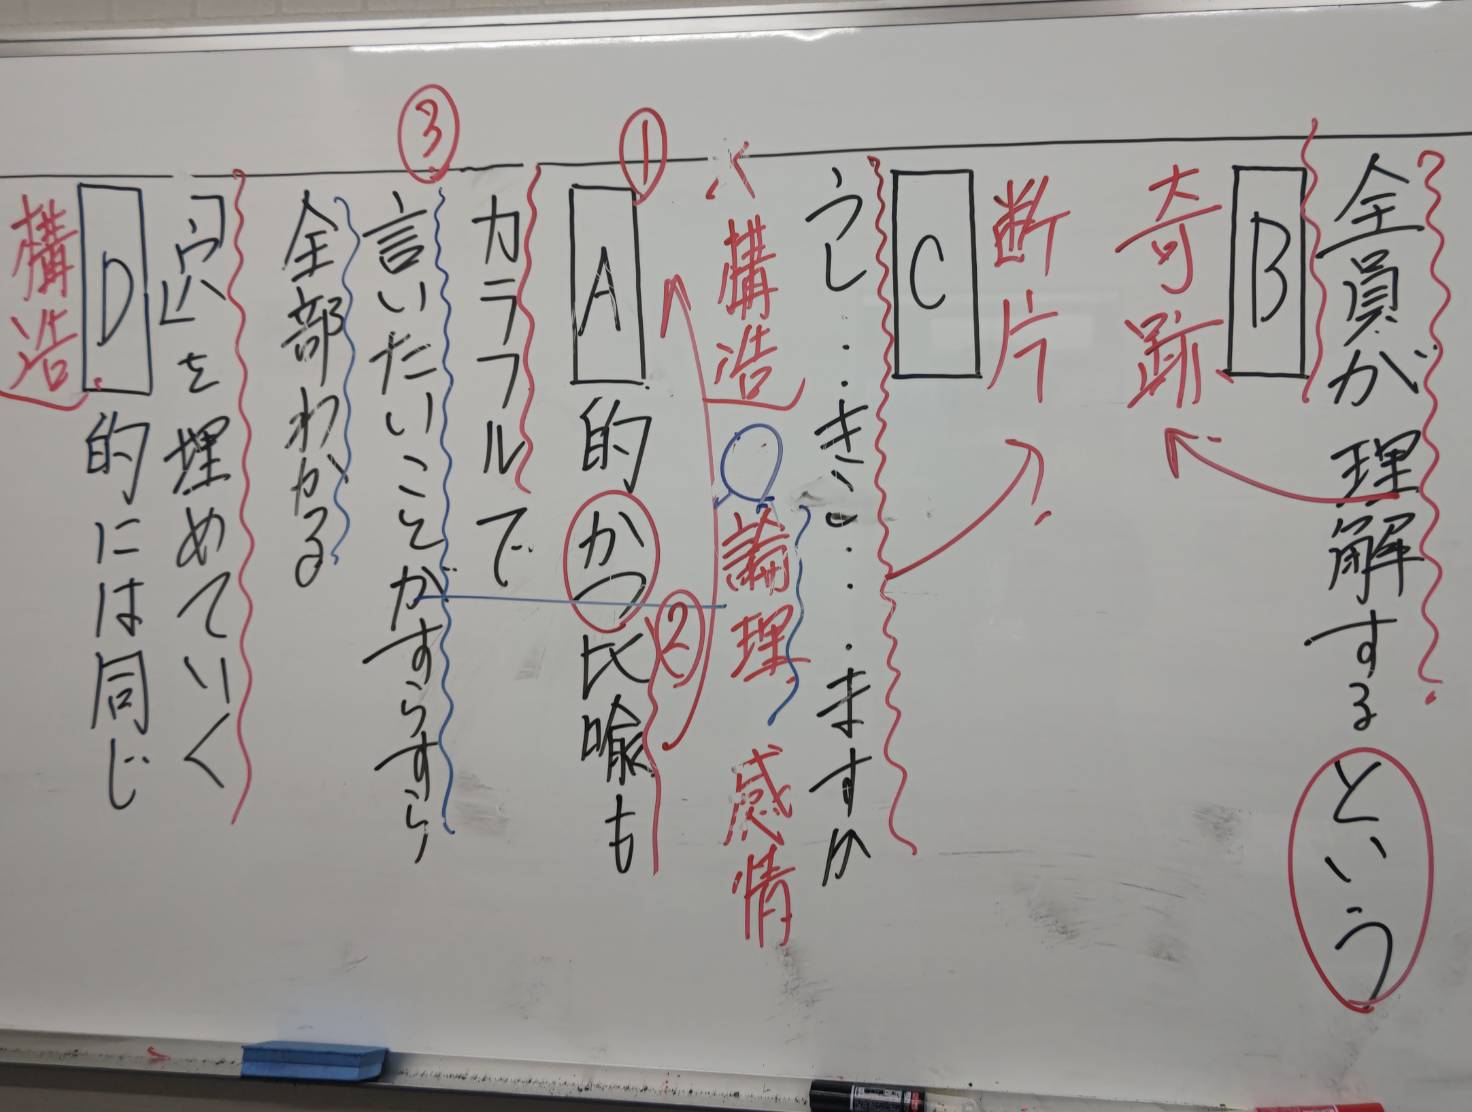 全員が理解するという
B
奇跡
断片
C
うし‥きこ‥ますか
×構造 論理 感情
①
A的かつ比喩も
②
カラフルで
③
言いたいことがすらすら
全部わかる
「穴」を埋めていく
D的には同じ
構造